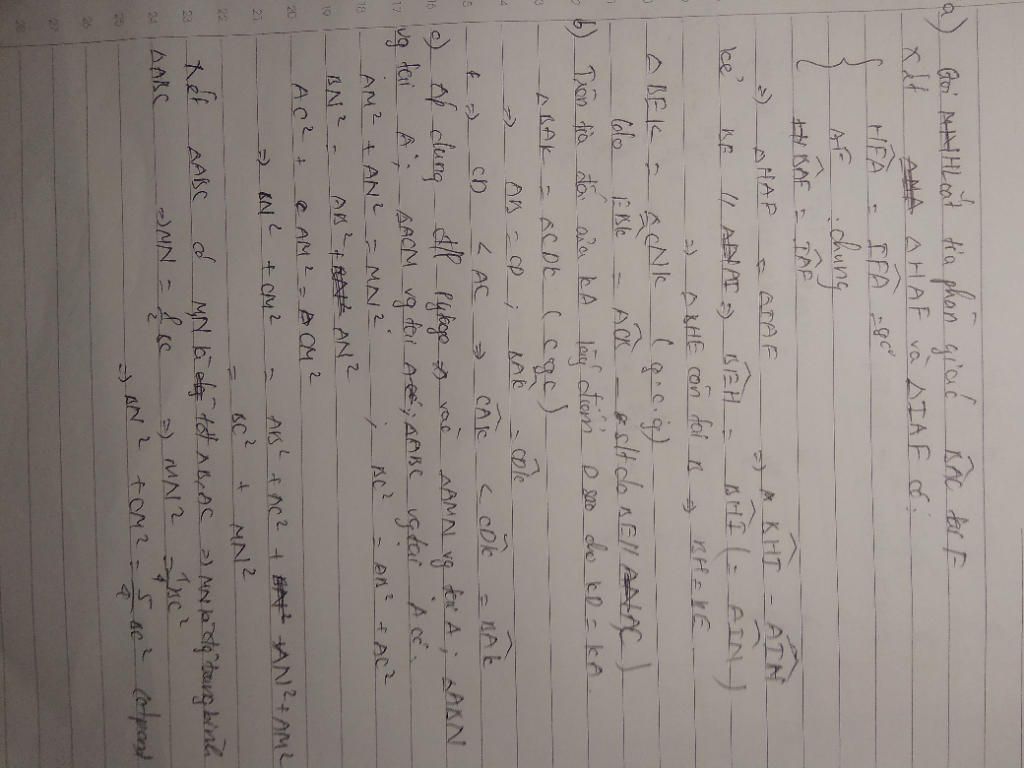 a) Gọi HI cắt tia phân giác BAC tại F
Xét ΔHAF và ΔIAF có:
HFA = IFA = 90°
AF : chung
HAF = IAF
=> ΔHAF = ΔIAF => BHI = AIN
kẻ BE // AI => BEH = BHI (= AIN)
=> ΔBHE cân tại B => BH = BE
ΔBEK = ΔCNK (g.c.g)
(do EBK = ACK do BE // AC)
b) Trên tia đối của KA lấy điểm D sao do KD = KA.
ΔBAK = ΔCDK (cgc)
=> AB = CD ; BAK = CDK
=> CD < AC => CAK < CDK = BAK
c) Áp dụng đlí Pytago vào ΔAMN vg tại A ; ΔABN
vg tại A ; ΔACM vg tại A ; ΔABC vg tại A có:
AM² + AN² = MN² ; BC² = AB² + AC²
BN² = AB² + AN²
AC² + AM² = CM²
=> BN² + CM² = AB² + AC² + AN² + AM²
= BC² + MN²
Xét ΔABC có M,N là tđ AB, AC => MN là đg trung bình
ΔABC => MN = 1/2 BC => MN² = 1/4 BC²
=> BN² + CM² = 5/4 BC² (đpcm)